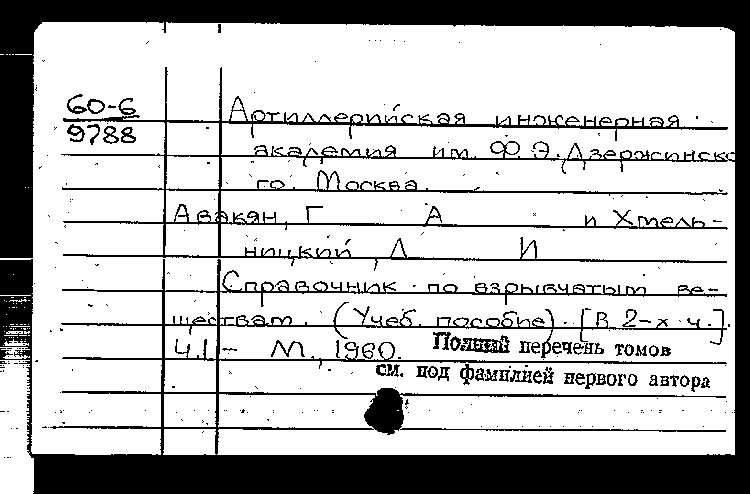 60-6
9788
Артиллерийская инженерная
академия им. Ф.Э. Дзержинско
го. Москва.
Авакян, Г А и Хмель-
ницкий, Л И
Справочник по взрывчатым ве-
ществам. (Учеб. пособие). [В 2-х ч.].
Ч.1 - М., 1960.
Полный перечень томов
см. под фамилией первого автора